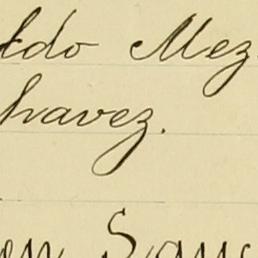 ldo Mez
havez.
on Sanc